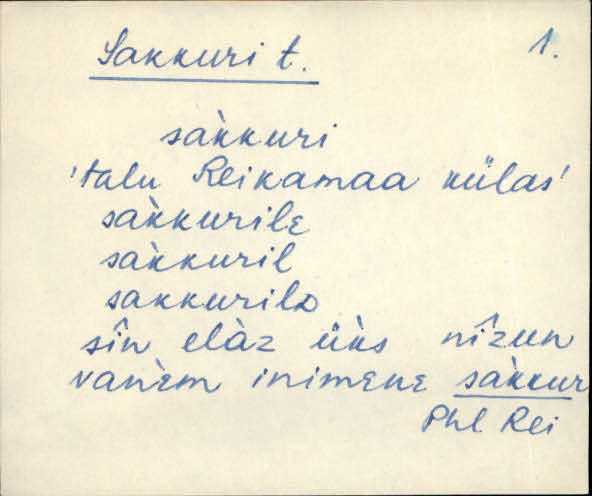 Sakkuri t.
1.
sàkkuri
'talu Reikamaa külas'
sàkkurilɛ
sàkkuril
sakkurilD
sîn elàz üks nîzun
vanèm inimɛnɛ sàkkur
Phl Rei